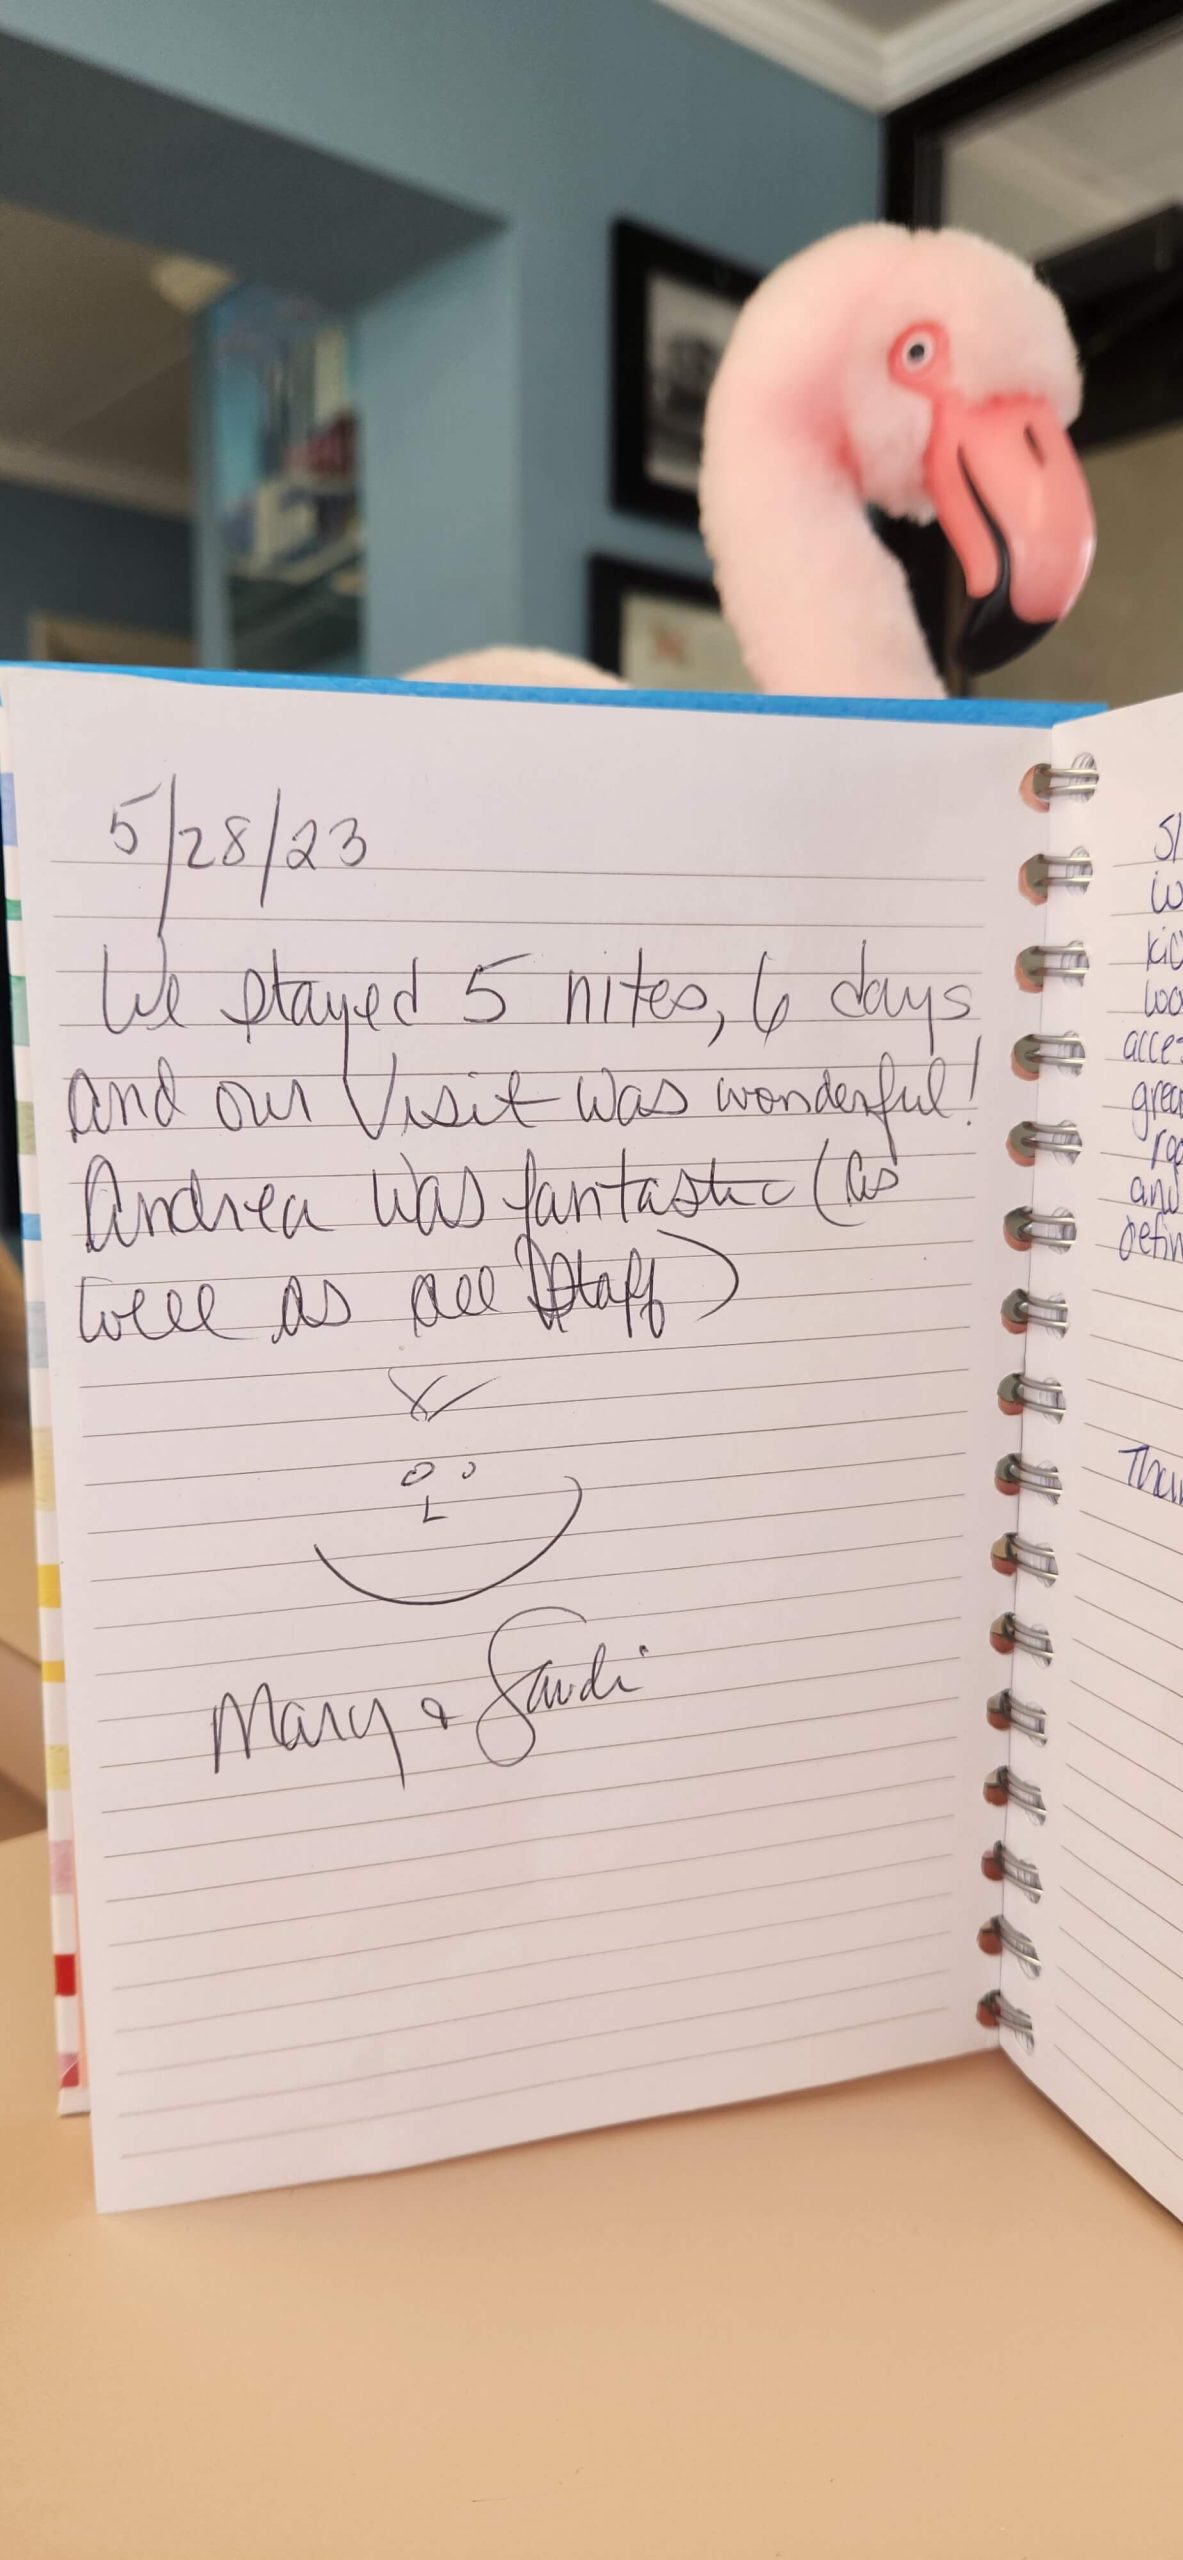 5/28/23
We stayed 5 nites, 6 days
and our visit was wonderful!
Andrea was fantastic (as
well as all staff)
Mary & Sandi
5/
kic
acces
grea
and
defin
Than